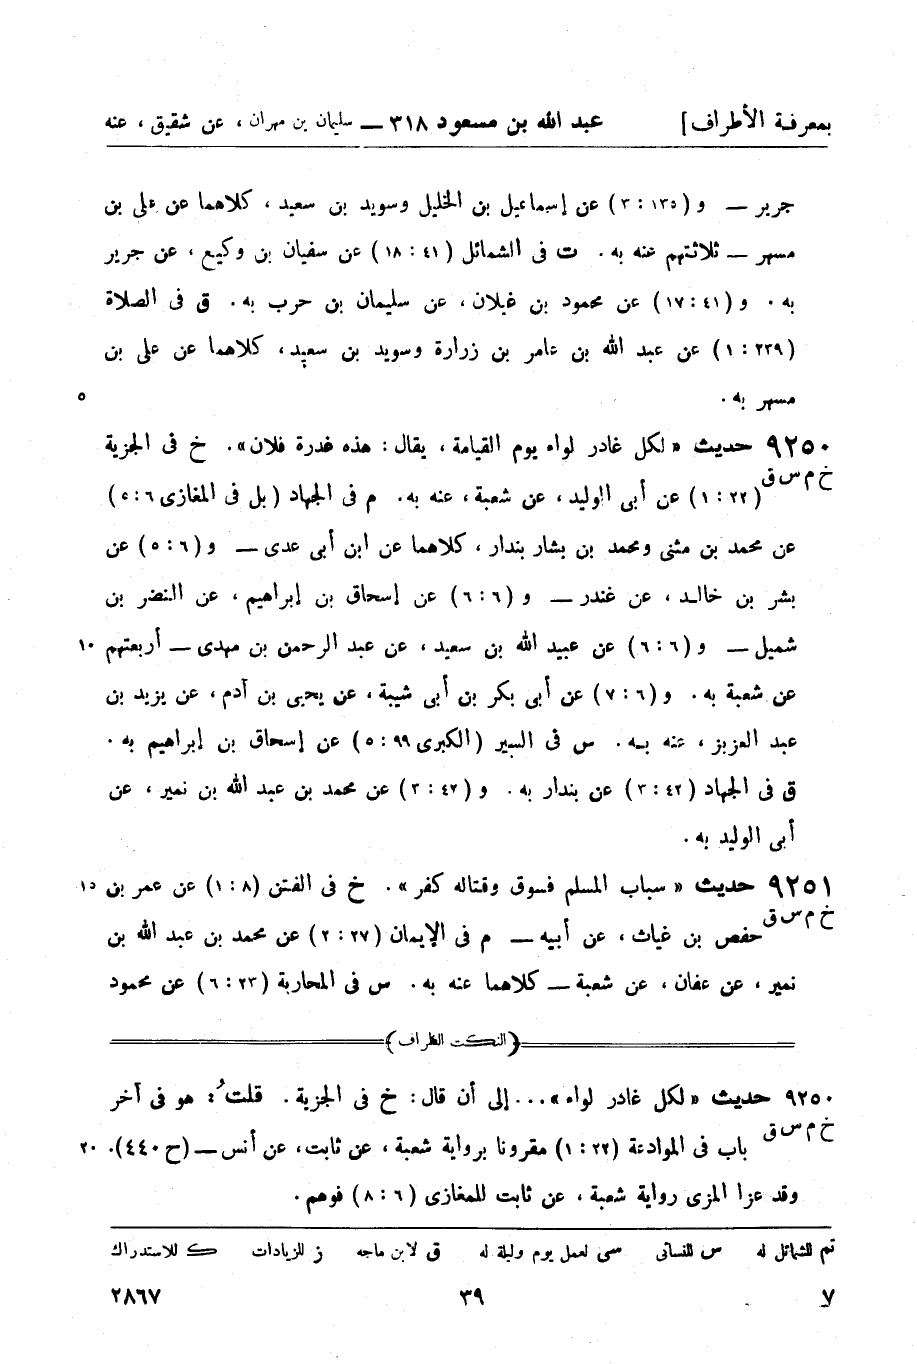 بمعرفة الأطراف] عبد الله بن مسعود ٣١٨ — سليمان بن مهران ، عن شقيق ، عنه
جرير — و (١٣٥ : ٣) عن إسماعيل بن الخليل وسويد بن سعيد ، كلاهما عن على بن
مسهر — ثلاثتهم عنه به . ت فى الشمائل (٤١ : ١٨) عن سفيان بن وكيع ، عن جرير
به . و (٤١ : ١٧) عن محمود بن غيلان ، عن سليمان بن حرب به . ق فى الصلاة
(٢٣٩ : ١) عن عبد الله بن عامر بن زرارة وسويد بن سعيد ، كلاهما عن على بن
مسهر به . ٥
٩٢٥٠ حديث « لكل غادر لواء يوم القيامة ، يقال : هذه غدرة فلان » . خ فى الجزية
خ م س ق (٢٢ : ١) عن أبى الوليد ، عن شعبة ، عنه به . م فى الجهاد ( بل فى المغازى ٦ : ٥)
عن محمد بن مثنى ومحمد بن بشار بندار ، كلاهما عن ابن أبى عدى — و (٦ : ٥) عن
بشر بن خالد ، عن غندر — و (٦ : ٦) عن إسحاق بن إبراهيم ، عن النضر بن
شميل — و (٦ : ٦) عن عبيد الله بن سعيد ، عن عبد الرحمن بن مهدى — أربعتهم ١٠
عن شعبة به . و (٦ : ٧) عن أبى بكر بن أبى شيبة ، عن يحيى بن آدم ، عن يزيد بن
عبد العزيز ، عنه به . س فى السير (الكبرى ٩٩ : ٥) عن إسحاق بن إبراهيم به .
ق فى الجهاد (٤٢ : ٣) عن بندار به . و (٤٢ : ٣) عن محمد بن عبد الله بن نمير ، عن
أبى الوليد به .
٩٢٥١ حديث « سباب المسلم فسوق وقتاله كفر » . خ فى الفتن (٨ : ١) عن عمر بن ١٥
خ م س ق حفص بن غياث ، عن أبيه — م فى الإيمان (٢٧ : ٢) عن محمد بن عبد الله بن
نمير ، عن عفان ، عن شعبة — كلاهما عنه به . س فى المحاربة (٢٣ : ٦) عن محمود
(النكت الظراف)
٩٢٥٠ حديث « لكل غادر لواء» ... إلى أن قال : خ فى الجزية . قلتُ : هو فى آخر
خ م س ق باب فى الموادعة (٢٢ : ١) مقرونا برواية شعبة ، عن ثابت ، عن أنس — (ح ٤٤٠) . ٢٠
وقد عزا المزى رواية شعبة ، عن ثابت للمغازى (٦ : ٨) فوهم .
تم للشمائل له س للنسائى سى لعمل يوم وليلة له ق لابن ماجه ز للزيادات ك للاستدراك
٧ ٣٩ ٢٨٦٧